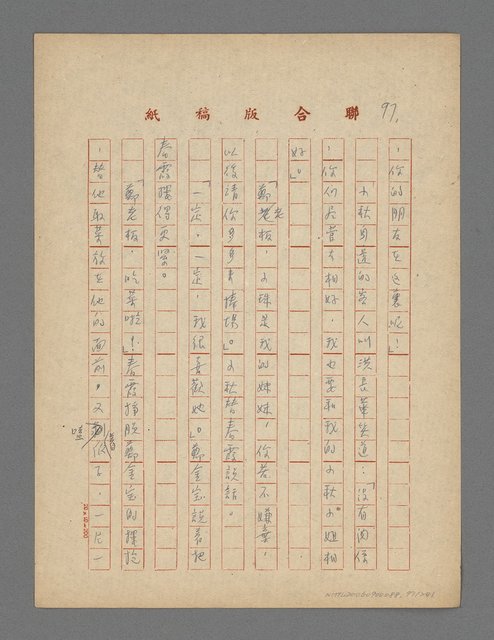 聯合版稿紙
97.
，你的朋友在這裏呢！」
小秋身邊的客人叫洪長華笑道：「沒有關係
，你們儘管去相好，我也要和我的小秋小姐相
好」。
「鄭老板，小珠是我的妹妹，你若不嫌棄，
以後請你多多來捧場」。小秋替春霞說話。
「一定，一定，我很喜歡她」。鄭金宝說着把
春霞摟得更緊。
「鄭老板，吃菜啦」！春霞掙脫鄭金宝的摟抱
，替他取菜放在他的面前。又低下，一片一
嗑着
20×10=200